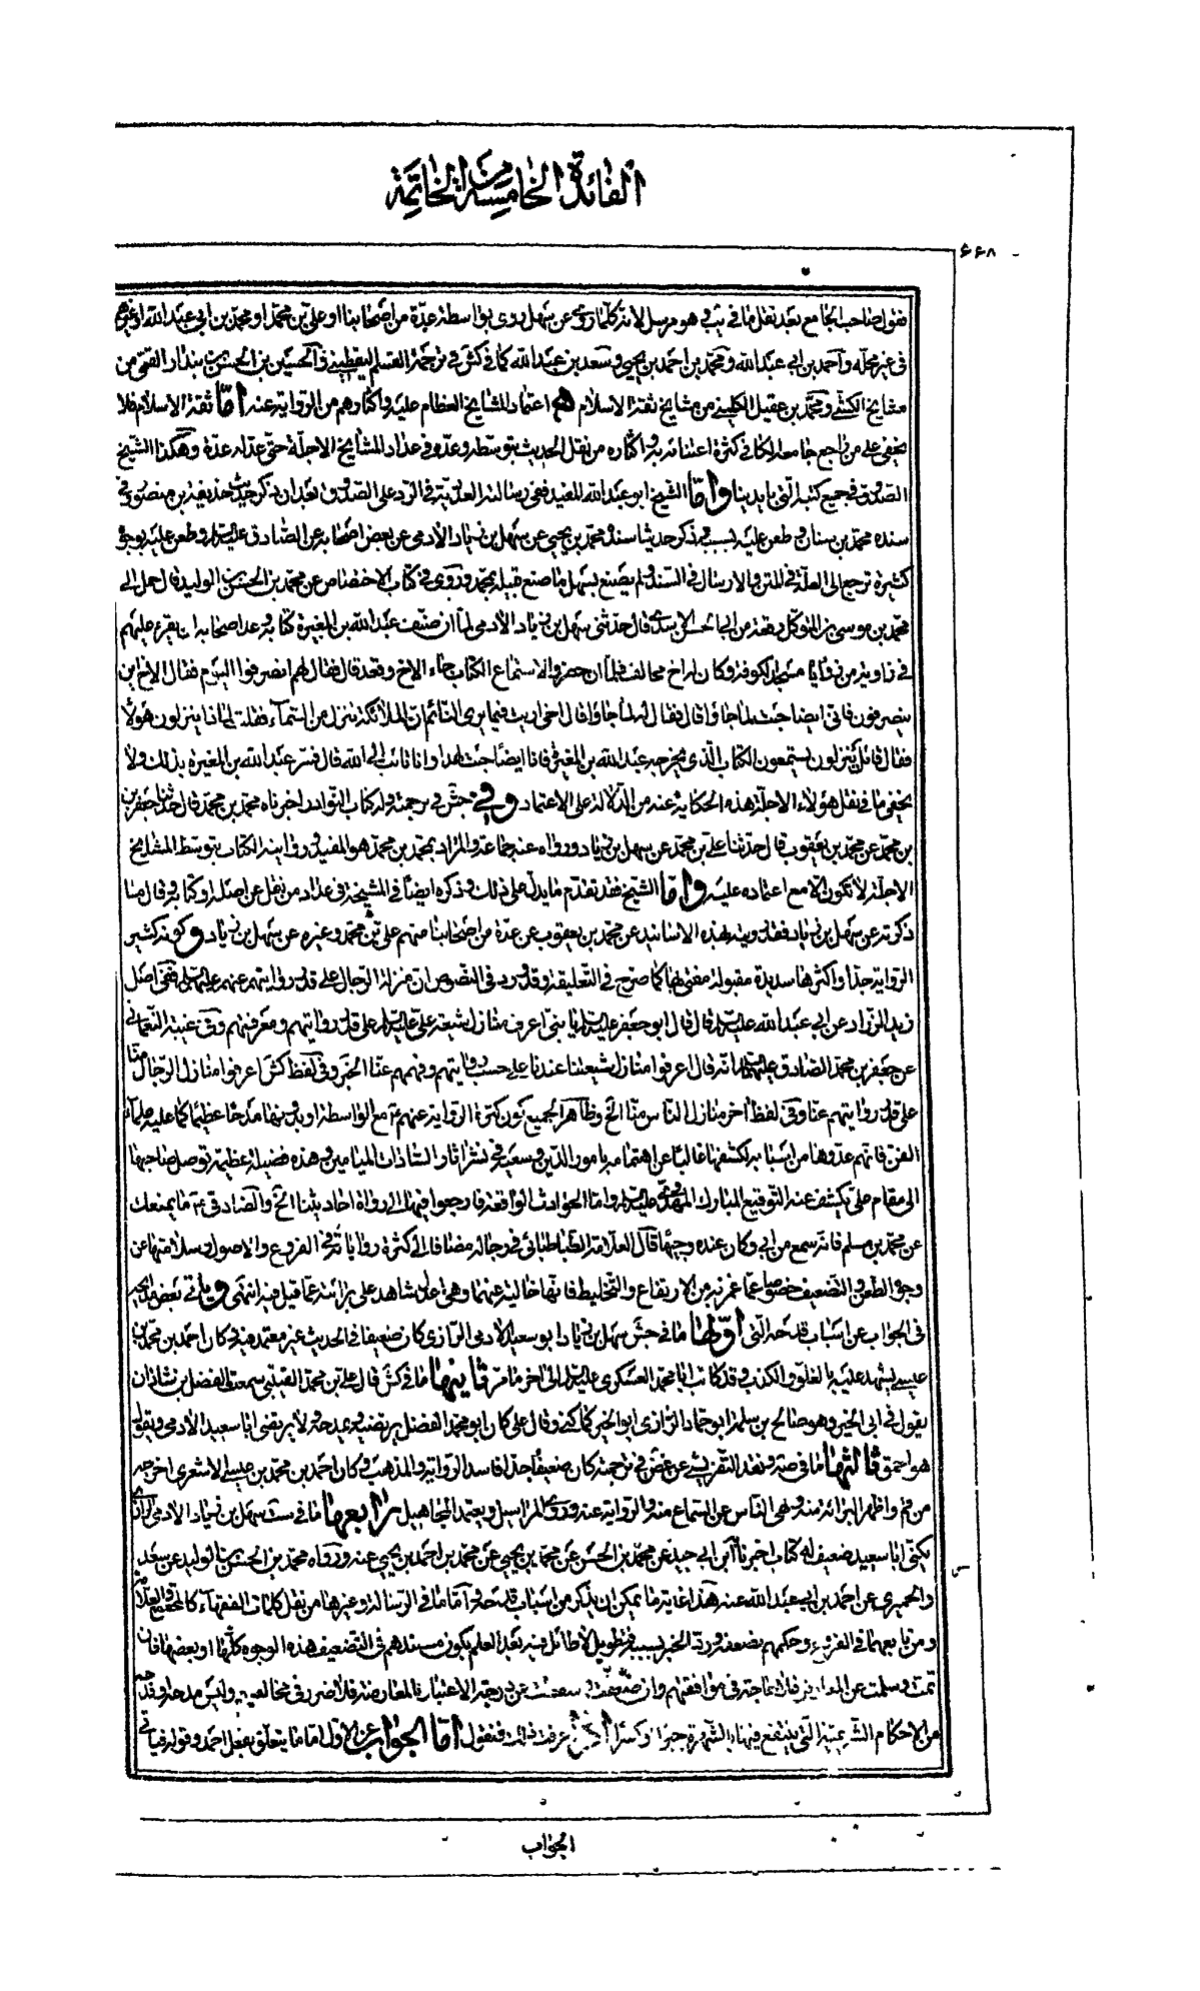 الفائدة الخامسة من الخاتمة
۶۶۸
فقول صاحب الجامع بعد نقل ما في يب وهو مرسل لانه كلما روى عن سهل روى بواسطة عدة من اصحابنا او علي بن محمد او محمد بن ابي عبد الله او غيرهم
في غير محله واحمد بن ابي عبد الله ومحمد بن احمد بن يحيى وسعد بن عبد الله كما في كش في ترجمة القسم اليقطيني والحسين بن الحسن بن بندار القمي من
مشايخ الكشي ومحمد بن عقيل الكليني من مشايخ ثقة الاسلام اعتماد المشايخ العظام عليه واكثارهم من الرواية عنه اما ثقة الاسلام فلا
يخفى على من راجع جامعه الكافي كثرة اعتنائه به واكثاره من نقل الحديث بتوسطه وعده في عداد المشايخ الاجلة حتى عد له عدة وهكذا الشيخ
الصدوق في جميع كتبه التي بايدينا واما الشيخ ابو عبد الله المفيد ففي رسالته العددية في الرد على الصدوق بعد ان ذكر حديث حذيفة بن منصور وفي
سنده محمد بن سنان وطعن عليه بسببه وذكر حديثا سنده محمد بن يحيى عن سهل بن زياد الادمي عن بعض اصحابه عن الصادق عليه السلام وطعن عليه بوجوه
كثيرة ترجع الى العلة في المتن والارسال في السند ولم يصنع بسهل ما صنع قبله بمحمد وروى في كتاب الاختصاص عن محمد بن الحسن بن الوليد قال حمل الي
محمد بن موسى بن المتوكل رقعة من ابي الحسن الاسدي قال حدثني سهل بن زياد الادمي لما ان صنف عبد الله بن المغيرة كتابه وعد اصحابه ان يقرء عليهم
في زاوية من زوايا مسجد الكوفة وكان له اخ مخالف فلما ان حضروا لاستماع الكتاب جاء الاخ وقعد قال فقال لهم انصرفوا اليوم فقال الاخ اين
ينصرفون فاني ايضا جئت لما جاؤا قال فقال له لما جاؤا قال يا اخي اريت فيما يرى النائم ان الملائكة تنزل من السماء فقلت لماذا ينزلون هؤلاء
فقال قائل ينزلون يستمعون الكتاب الذي يخرجه عبد الله بن المغيرة فانا ايضا جئت لهذا وانا تائب الى الله قال فسر عبد الله بن المغيرة بذلك ولا
يخفى ما في نقل هؤلاء الاجلة هذه الحكاية عنه من الدلالة على الاعتماد وفي جش في ترجمته وله كتاب النوادر اخبرناه محمد بن محمد قال حدثنا جعفر بن
بن محمد عن محمد بن يعقوب قال حدثنا علي بن محمد عن سهل بن زياد ورواه عنه جماعة والمراد بمحمد بن محمد هو المفيد وروايته الكتاب بتوسط المشايخ
الاجلة لا تكون الا مع اعتماده عليه واما الشيخ فقد تقدم ما يدل على ذلك وذكره ايضا في المشيخة في عداد من نقل عن اصله وكتابه وقال ما
ذكرته عن سهل بن زياد فقد رويته بهذه الاسانيد عن محمد بن يعقوب عن عدة من اصحابنا منهم علي بن محمد وغيره عن سهل بن زياد وكونه كثير
الرواية جدا واكثرها سديدة مقبولة مفتى بها كما صرح في التعليقة وقد ورد في النصوص ان منزلة الرجال على قدر روايتهم عنهم عليهم السلام ففي اصل
زيد الزراد عن ابي عبد الله عليه السلام قال قال ابو جعفر عليه السلام يا بني اعرف منازل شيعة علي عليه السلام على قدر روايتهم ومعرفتهم وفي غيبة النعماني
عن جعفر بن محمد الصادق عليهما السلام انه قال اعرفوا منازل شيعتنا عندنا على حسب روايتهم وفهمهم عنا الخبر وفي لفظ كش اعرفوا منازل الرجال منا
على قدر روايتهم عنا وفي لفظ اخر منازل الناس منا الخ وظاهر الجميع كون كثرة الرواية عنهم ع مع الواسطة او بدونها مدحا عظيما كما عليه علماء
الفن فانهم عدوها من اسبابه لكشفها غالبا عن اهتمامه بامور الدين وسعيه في نشر اثار السادات الميامين وهذه فضيلة عظيمة توصل صاحبها
الى مقام علي يكشف عنه التوقيع المبارك المهدوي عليه السلام واما الحوادث الواقعة فارجعوا فيها الى رواة احاديثنا الخ والصادقي ع ما يمنعك
عن محمد بن مسلم فانه سمع من ابي وكان عنده وجيها قال العلامة الطباطبائي في رجاله مضافا الى كثرة رواياته في الفروع والاصول وسلامتها عن
وجوه الطعن والتضعيف خصوصا عما غمز به من الارتفاع والتخليط فانها خالية عنهما وهي اعدل شاهد على برائته عما قيل فيه انتهى وياتي بعض
في الجواب عن اسباب قدحه التي اولها ما في جش سهل بن زياد ابو سعيد الادمي الرازي كان ضعيفا في الحديث غير معتمد فيه وكان احمد بن محمد بن
عيسى يشهد عليه بالغلو والكذب وقد كاتب ابا محمد العسكري عليه السلام الى اخر ما مر ثانيها ما في كش قال علي بن محمد القتيبي سمعت الفضل بن شاذان
يقول في ابي الخير وهو صالح بن سلمة ابو حماد الرازي ابو الخير كما كني وقال علي كان ابو محمد الفضل يرتضيه ويمدحه ولا يرتضي ابا سعيد الادمي ويقول
هو احمق ثالثها ما في صه ونقد التفريشي عن غض في ترجمته كان ضعيفا جدا فاسد الرواية والمذهب وكان احمد بن محمد بن عيسى الاشعري اخرجه
من قم واظهر البرائة منه ونهى الناس عن السماع منه والرواية عنه ويروي المراسيل ويعتمد المجاهيل رابعها ما في ست سهل بن زياد الادمي الرازي
يكنى ابا سعيد ضعيف له كتاب اخبرنا ابن ابي جيد عن محمد بن الحسن عن محمد بن يحيى عن محمد بن احمد بن يحيى عنه ورواه محمد بن الحسن بن الوليد عن سعد
والحميري عن احمد بن ابي عبد الله عنه هذا غاية ما يمكن ان يذكر من اسباب قدحه واما ما في الرسالة وغيرها من نقل كلمات الفقهاء كالمحقق والعلامة
ومن تابعهما في الفروع وحكمهم بضعفه ورد الخبر بسببه فتطويل لا طائل فيه بعد العلم بكون مستندهم في التضعيف هذه الوجوه كلها او بعضها فان
تمت وسلمت عن المعارض فلا حاجة في موافقتهم وان ضعفت وسقطت عن درجة الاعتبار بالمعارضة فلا ضرر في مخالفتهم وليس مدحه وقدحه
من الاحكام الشرعية التي ينتفع فيها بالشهرة جبرا وكسرا عرفت ذلك فنقول اما الجواب عن الاول اما ما يتعلق بفعل احمد وقوله فياتي
الجواب